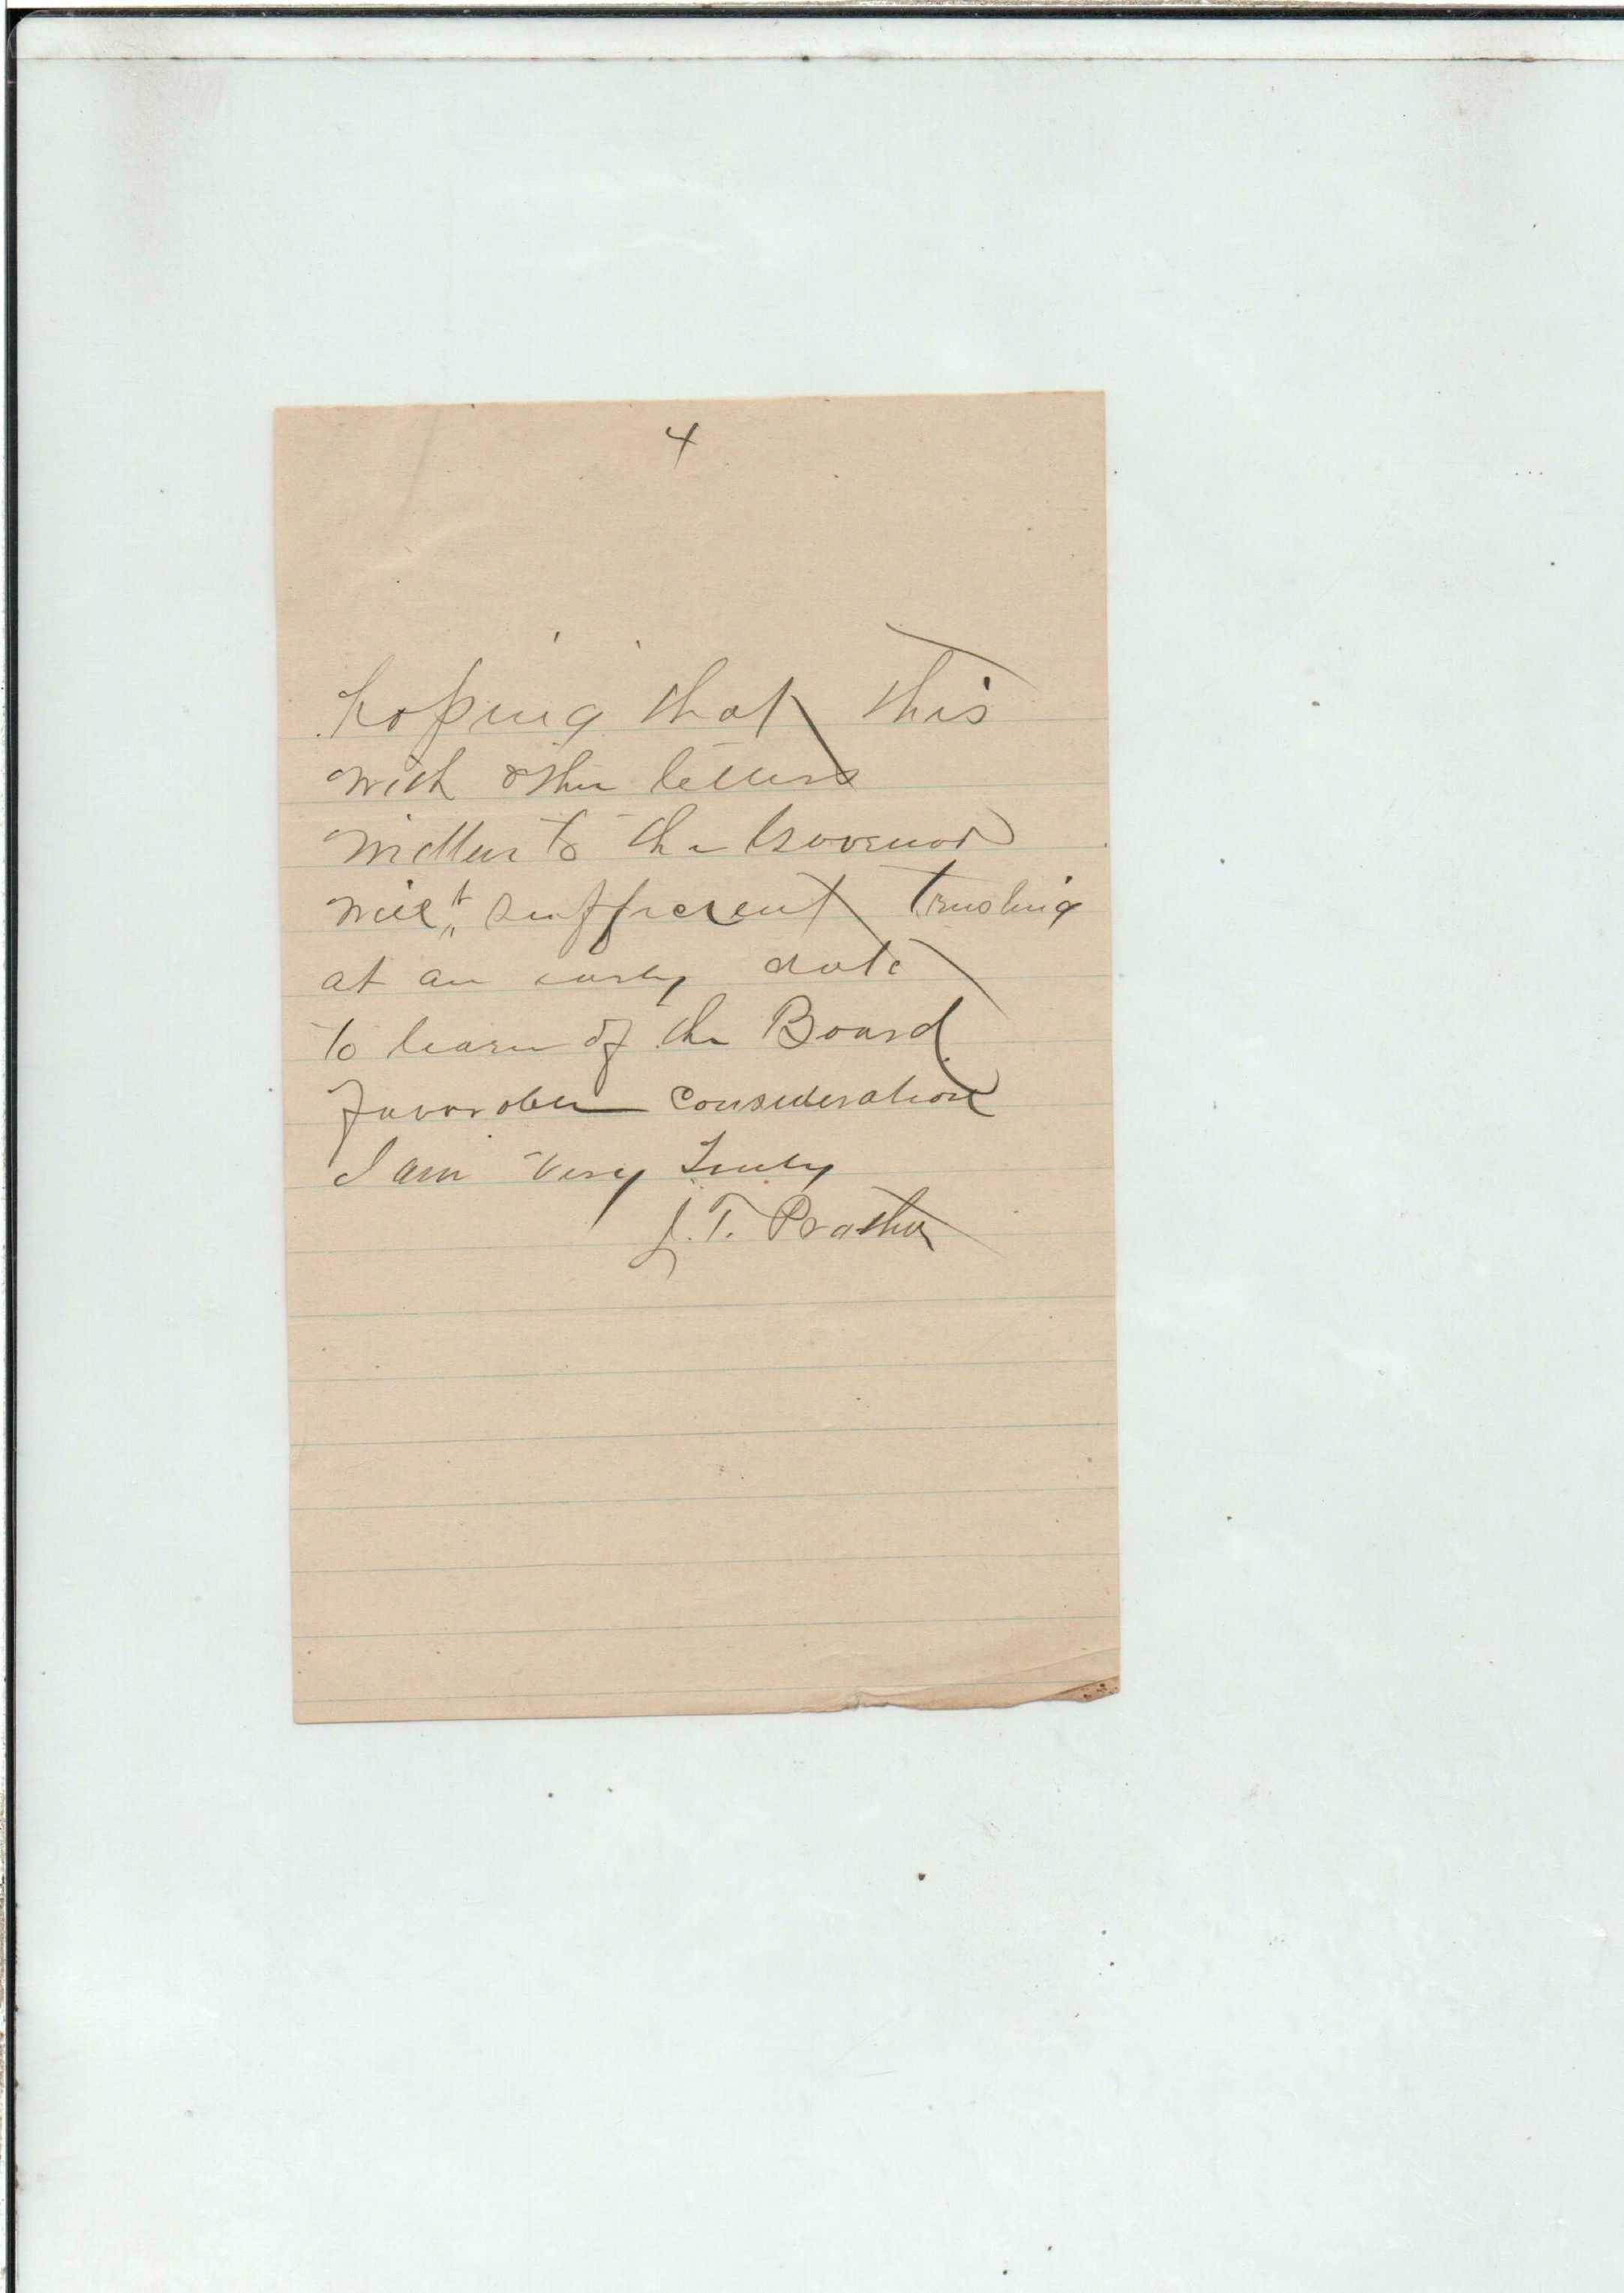 4
hoping that this
with other letters
written to the Govenor
will sufficient trusting
at an early date
to learn of the Board
favorable consideration
I am Very Truly
J. T. Prather